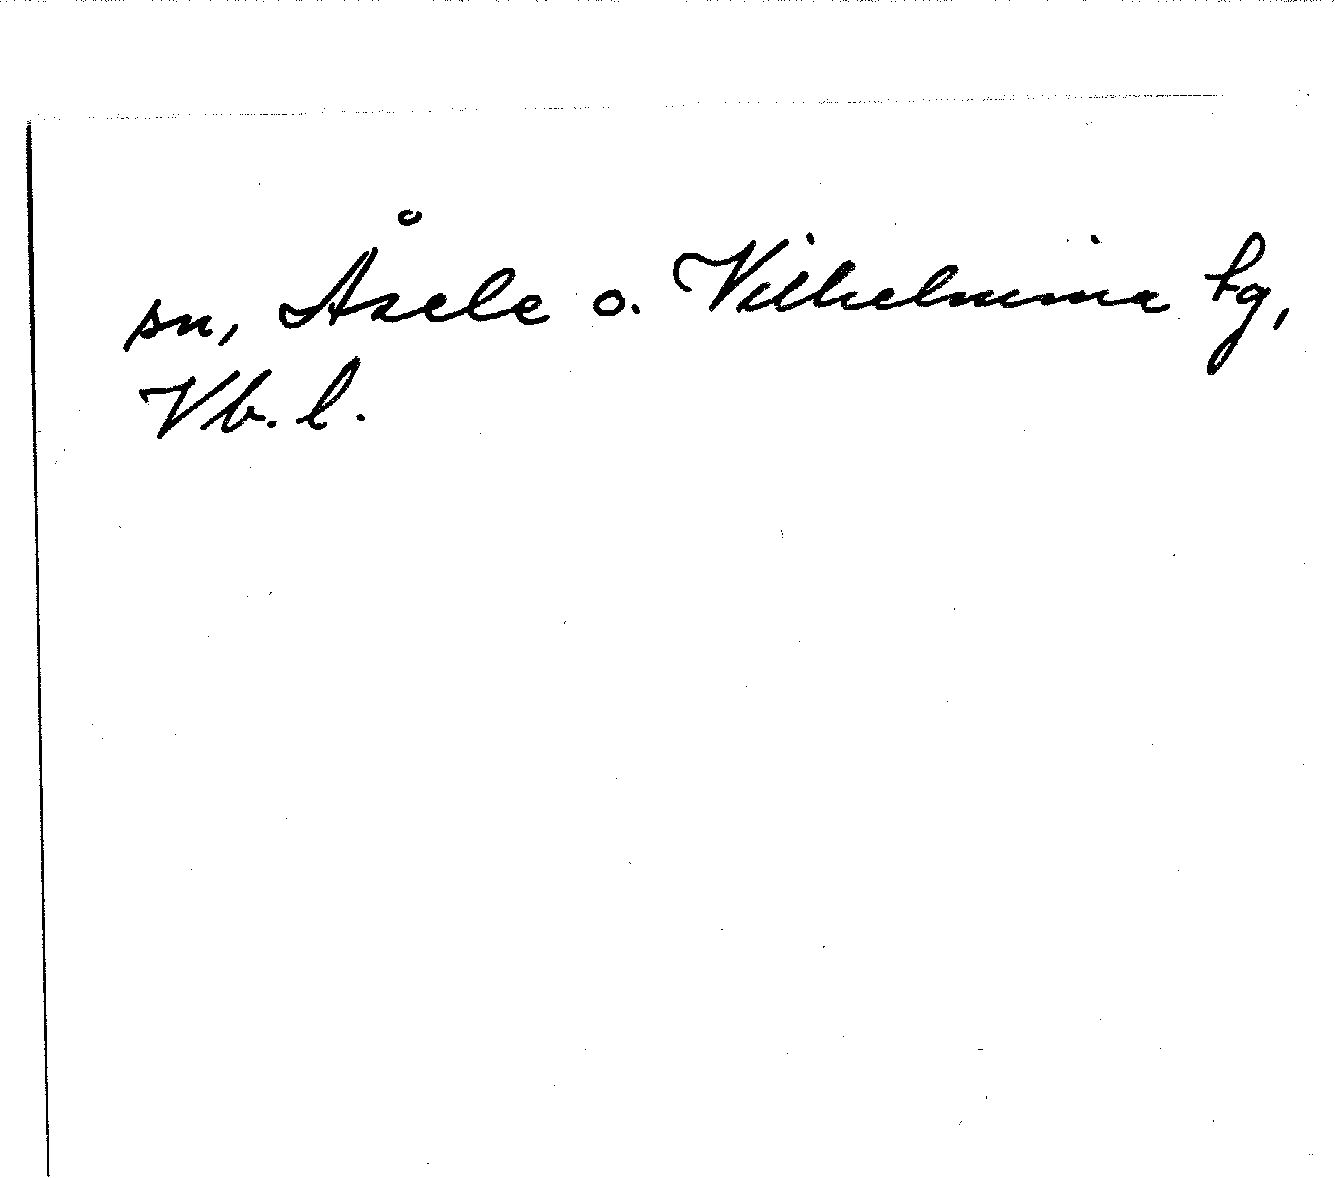 sn, Åsele o. Vilhelmina tg,
Vb. l.